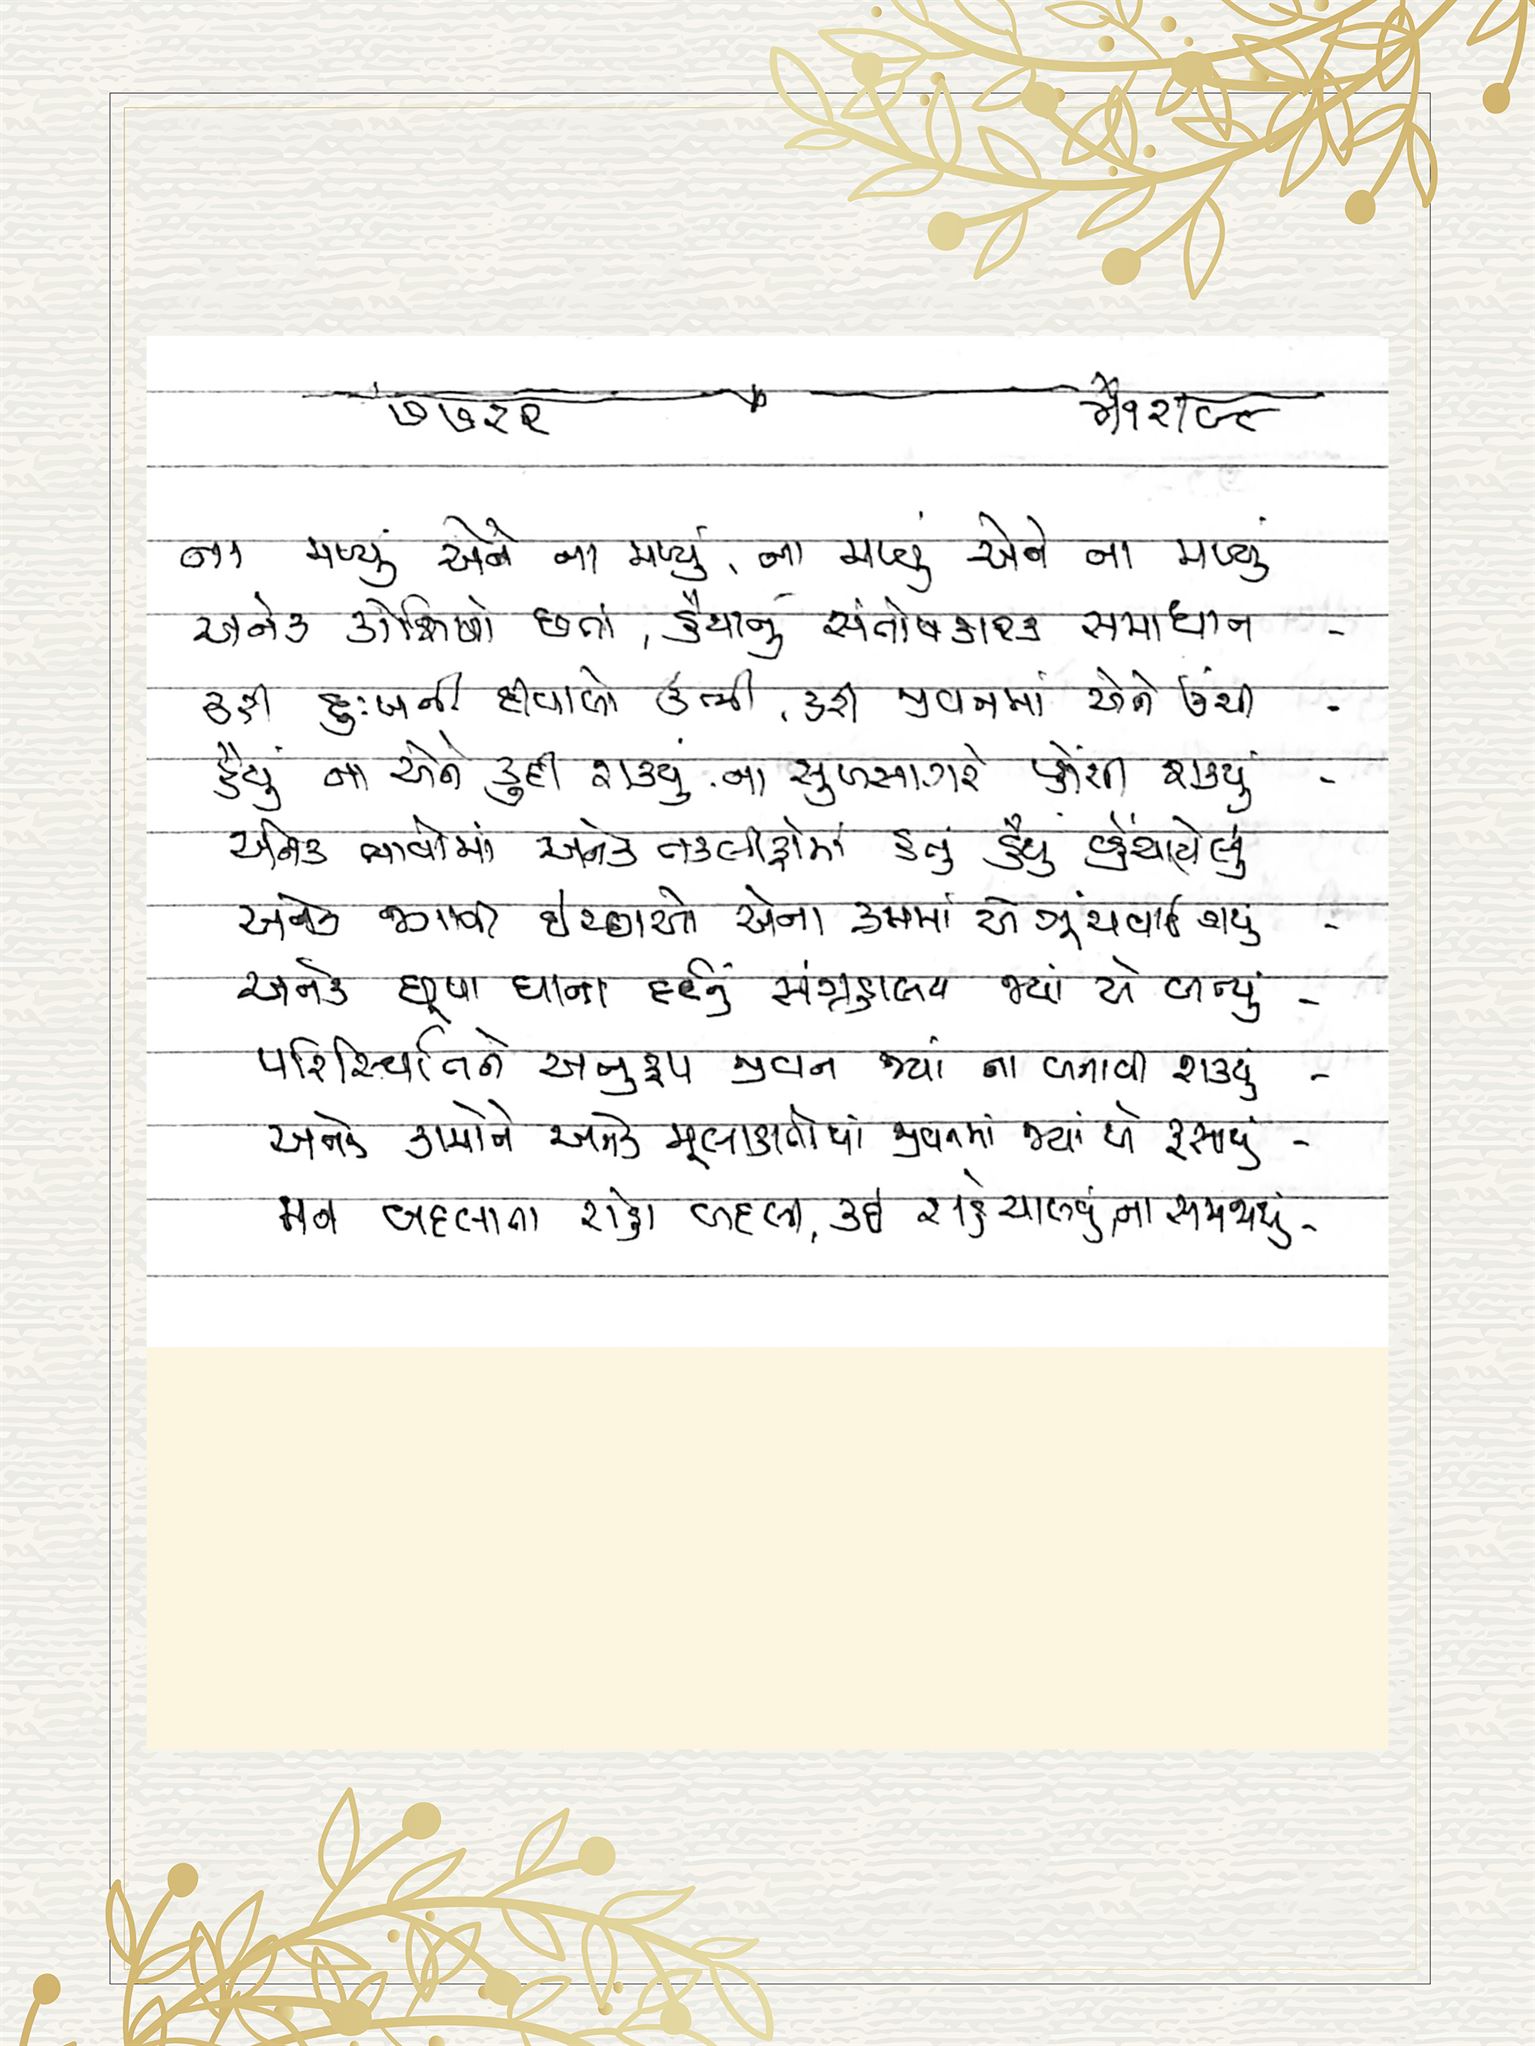 ૭૭૨૨ વૈરાગ્ય
ના મળ્યું એને ના મળ્યું, ના મળ્યું એને ના મળ્યું
અનેક કોશિશો છતાં, હૈયાનું સંતોષકારક સમાધાન -
કરી દુઃખની દીવાલો ઉભી, કરી જીવનમાં એને ઉંચી -
હૈયું ના એને કુદી શક્યું, ના સુખસાગરે પહોંચી શક્યું -
અનેક ભાવોમાં અનેક તકલીફોમાં હતું હૈયું વ્હેંચાયેલું
અનેક જાગતી ઇચ્છાઓ એના ક્રમમાં એ ગૂંચવાઈ ગયું -
અનેક છૂપા ઘાના દર્દનું સંગ્રહાલય જ્યાં એ બન્યું -
પરિસ્થિતિને અનુરૂપ જીવન જ્યાં ના બનાવી શક્યું -
અનેક કામોને અનેક મૂલાકાતોમાં જીવનમાં જ્યાં એ ફસાયું -
મન બદલાતા રાહો બદલી, કઈ રાહે ચાલવું, ના સમજાયું -